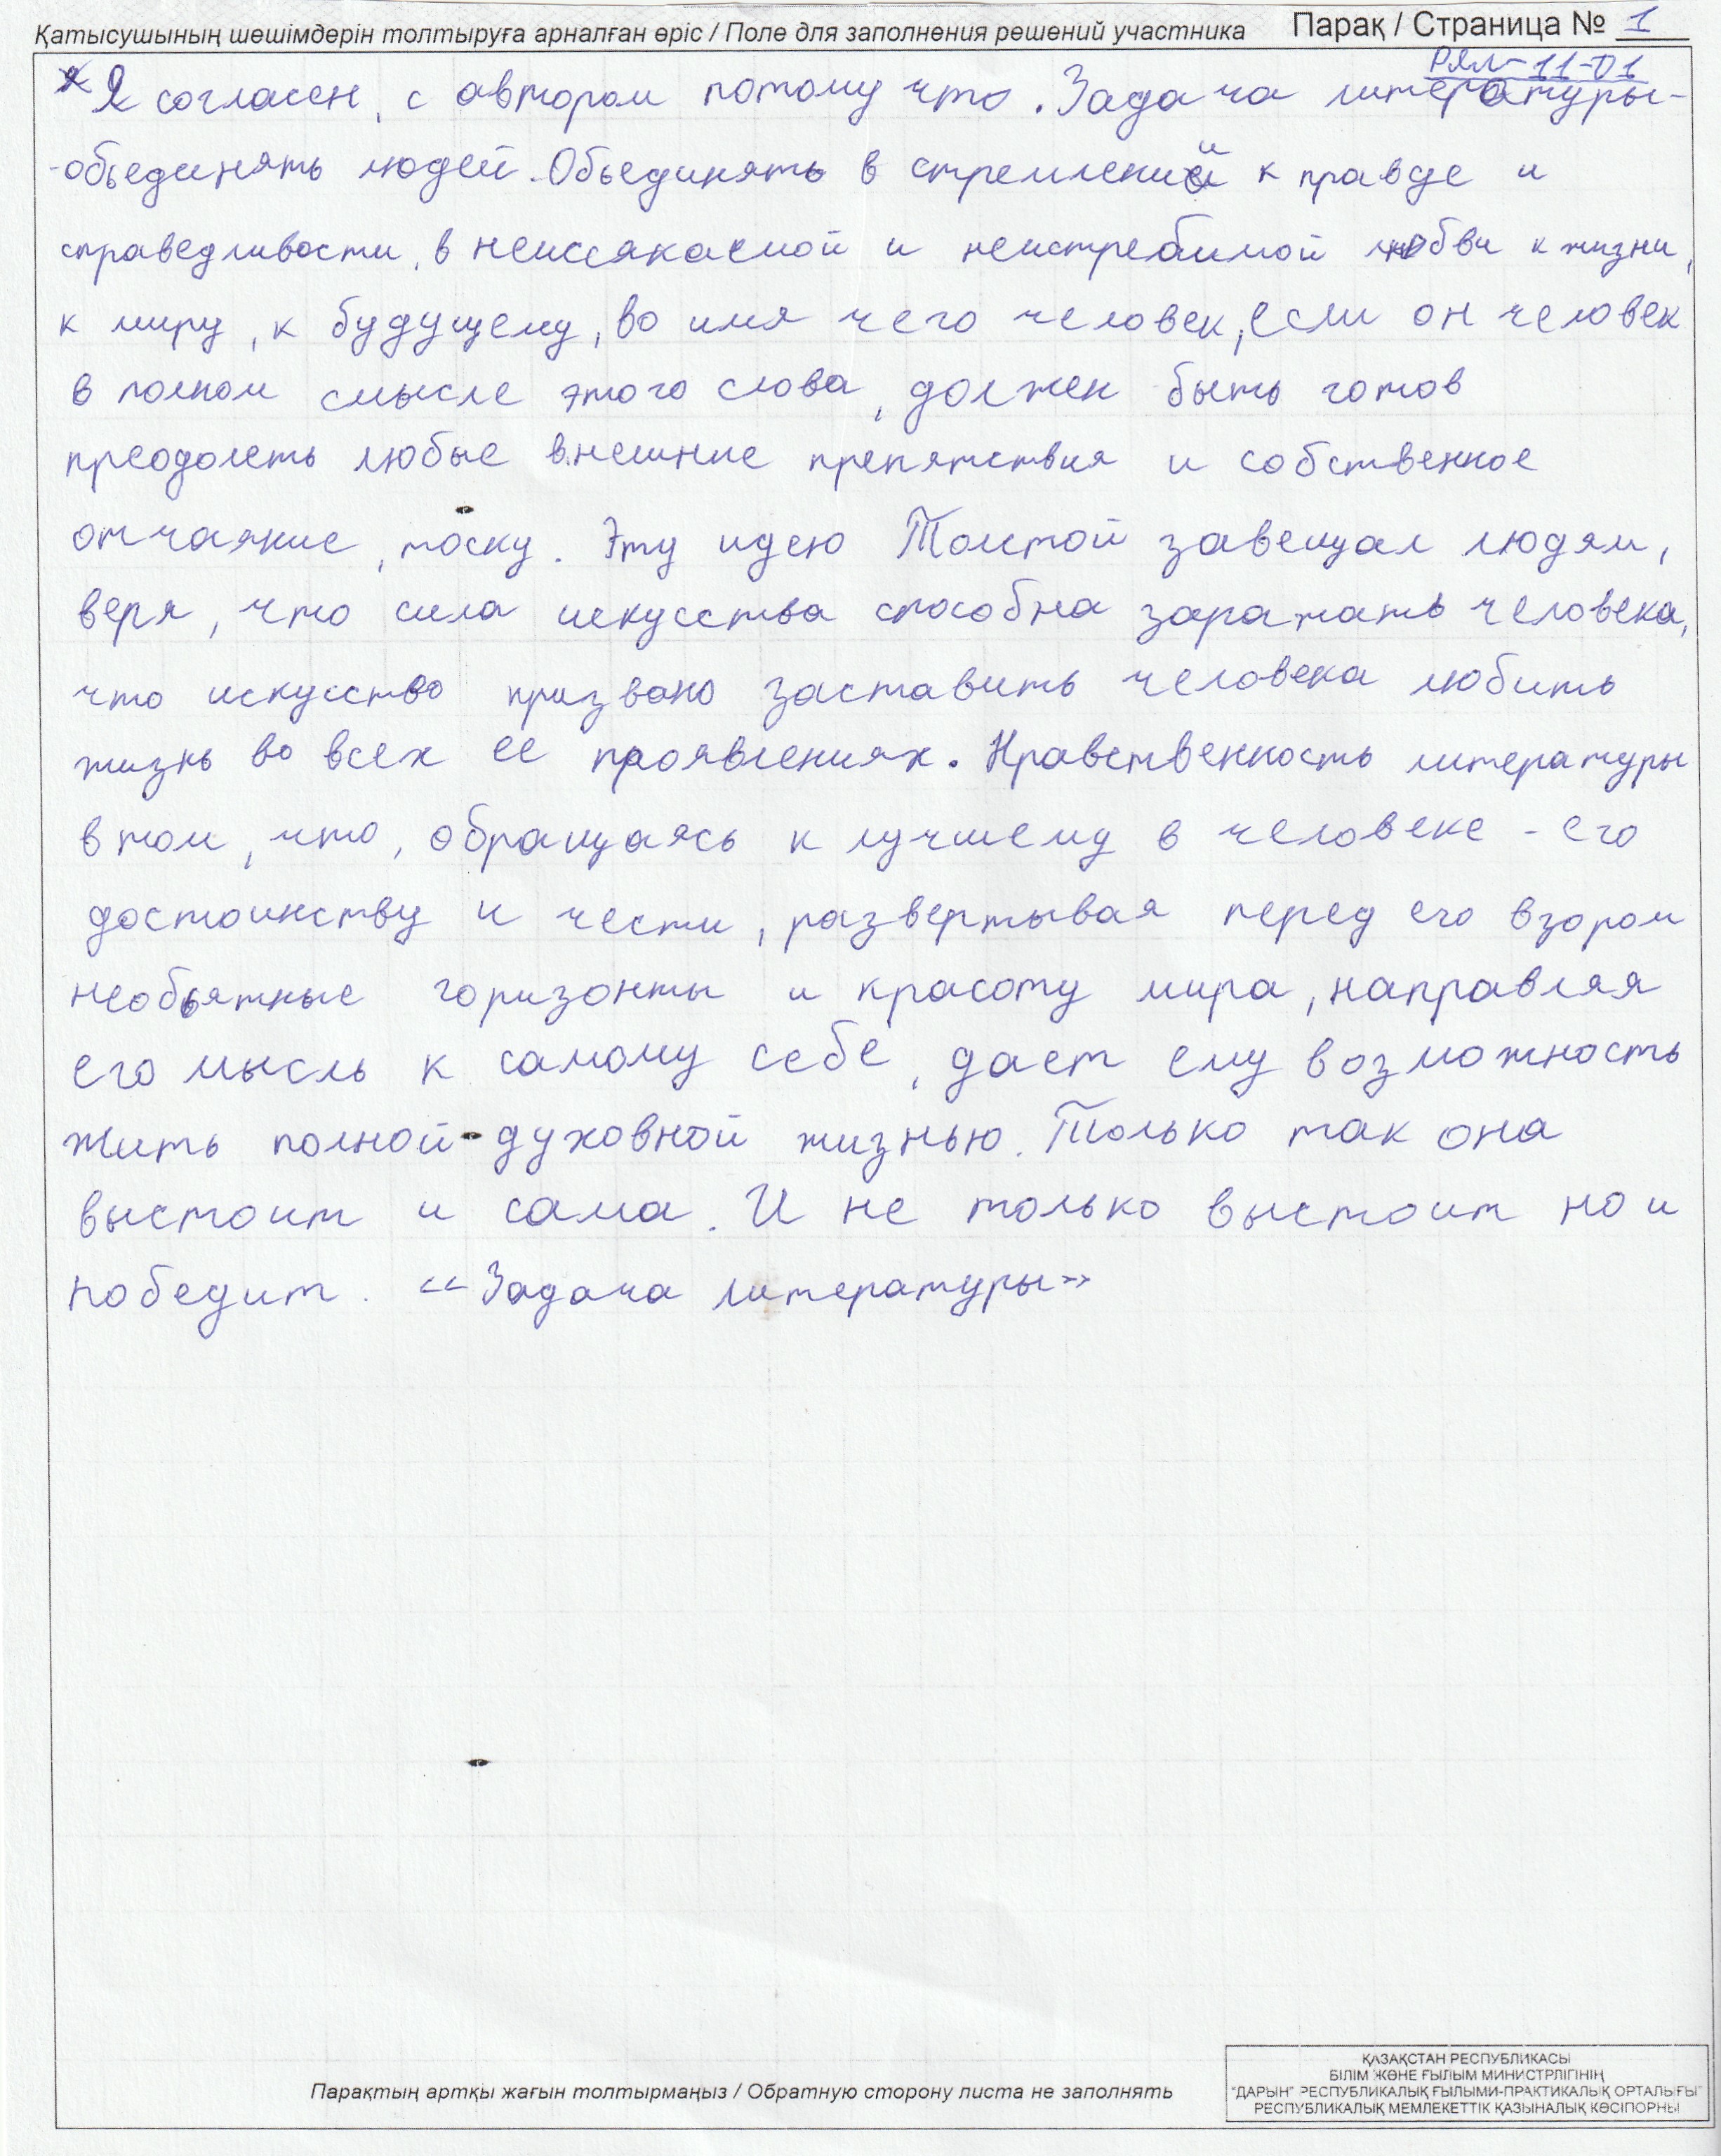 Қатысушының шешімдерін толтыруға арналған өріс / Поле для заполнения решений участника Парақ / Страница № 1
РЯЛ-11-01
Я согласен, с автором потому что. Задача литературы-
-обьединять людей. Обьединять в стремлений к правде и
справедливости, в неиссякаемой и неистребимой любви к жизни,
к миру, к будущему, во имя чего человек, если он человек
в полном смысле этого слова, должен быть готов
преодолеть любые внешние препятствия и собственное
отчаяние, тоску. Эту идею Толстой завещал людям,
веря, что сила искусства способна заражать человека,
что искусство призвано заставить человека любить
жизнь во всех ее проявлениях. Нравственность литературы
в том, что, обращаясь к лучшему в человеке - его
достоинству и чести, развертывая перед его взором
необьятные горизонты и красоту мира, направляя
его мысль к самому себе, дает ему возможность
жить полной духовной жизнью. Только так она
выстоит и сама. И не только выстоит но и
победит. «Задача литературы»
Парақтың артқы жағын толтырмаңыз / Обратную сторону листа не заполнять
ҚАЗАҚСТАН РЕСПУБЛИКАСЫ
БІЛІМ ЖӘНЕ ҒЫЛЫМ МИНИСТРЛІГІНІҢ
"ДАРЫН" РЕСПУБЛИКАЛЫҚ ҒЫЛЫМИ-ПРАКТИКАЛЫҚ ОРТАЛЫҒЫ"
РЕСПУБЛИКАЛЫҚ МЕМЛЕКЕТТІК ҚАЗЫНАЛЫҚ КӘСІПОРНЫ